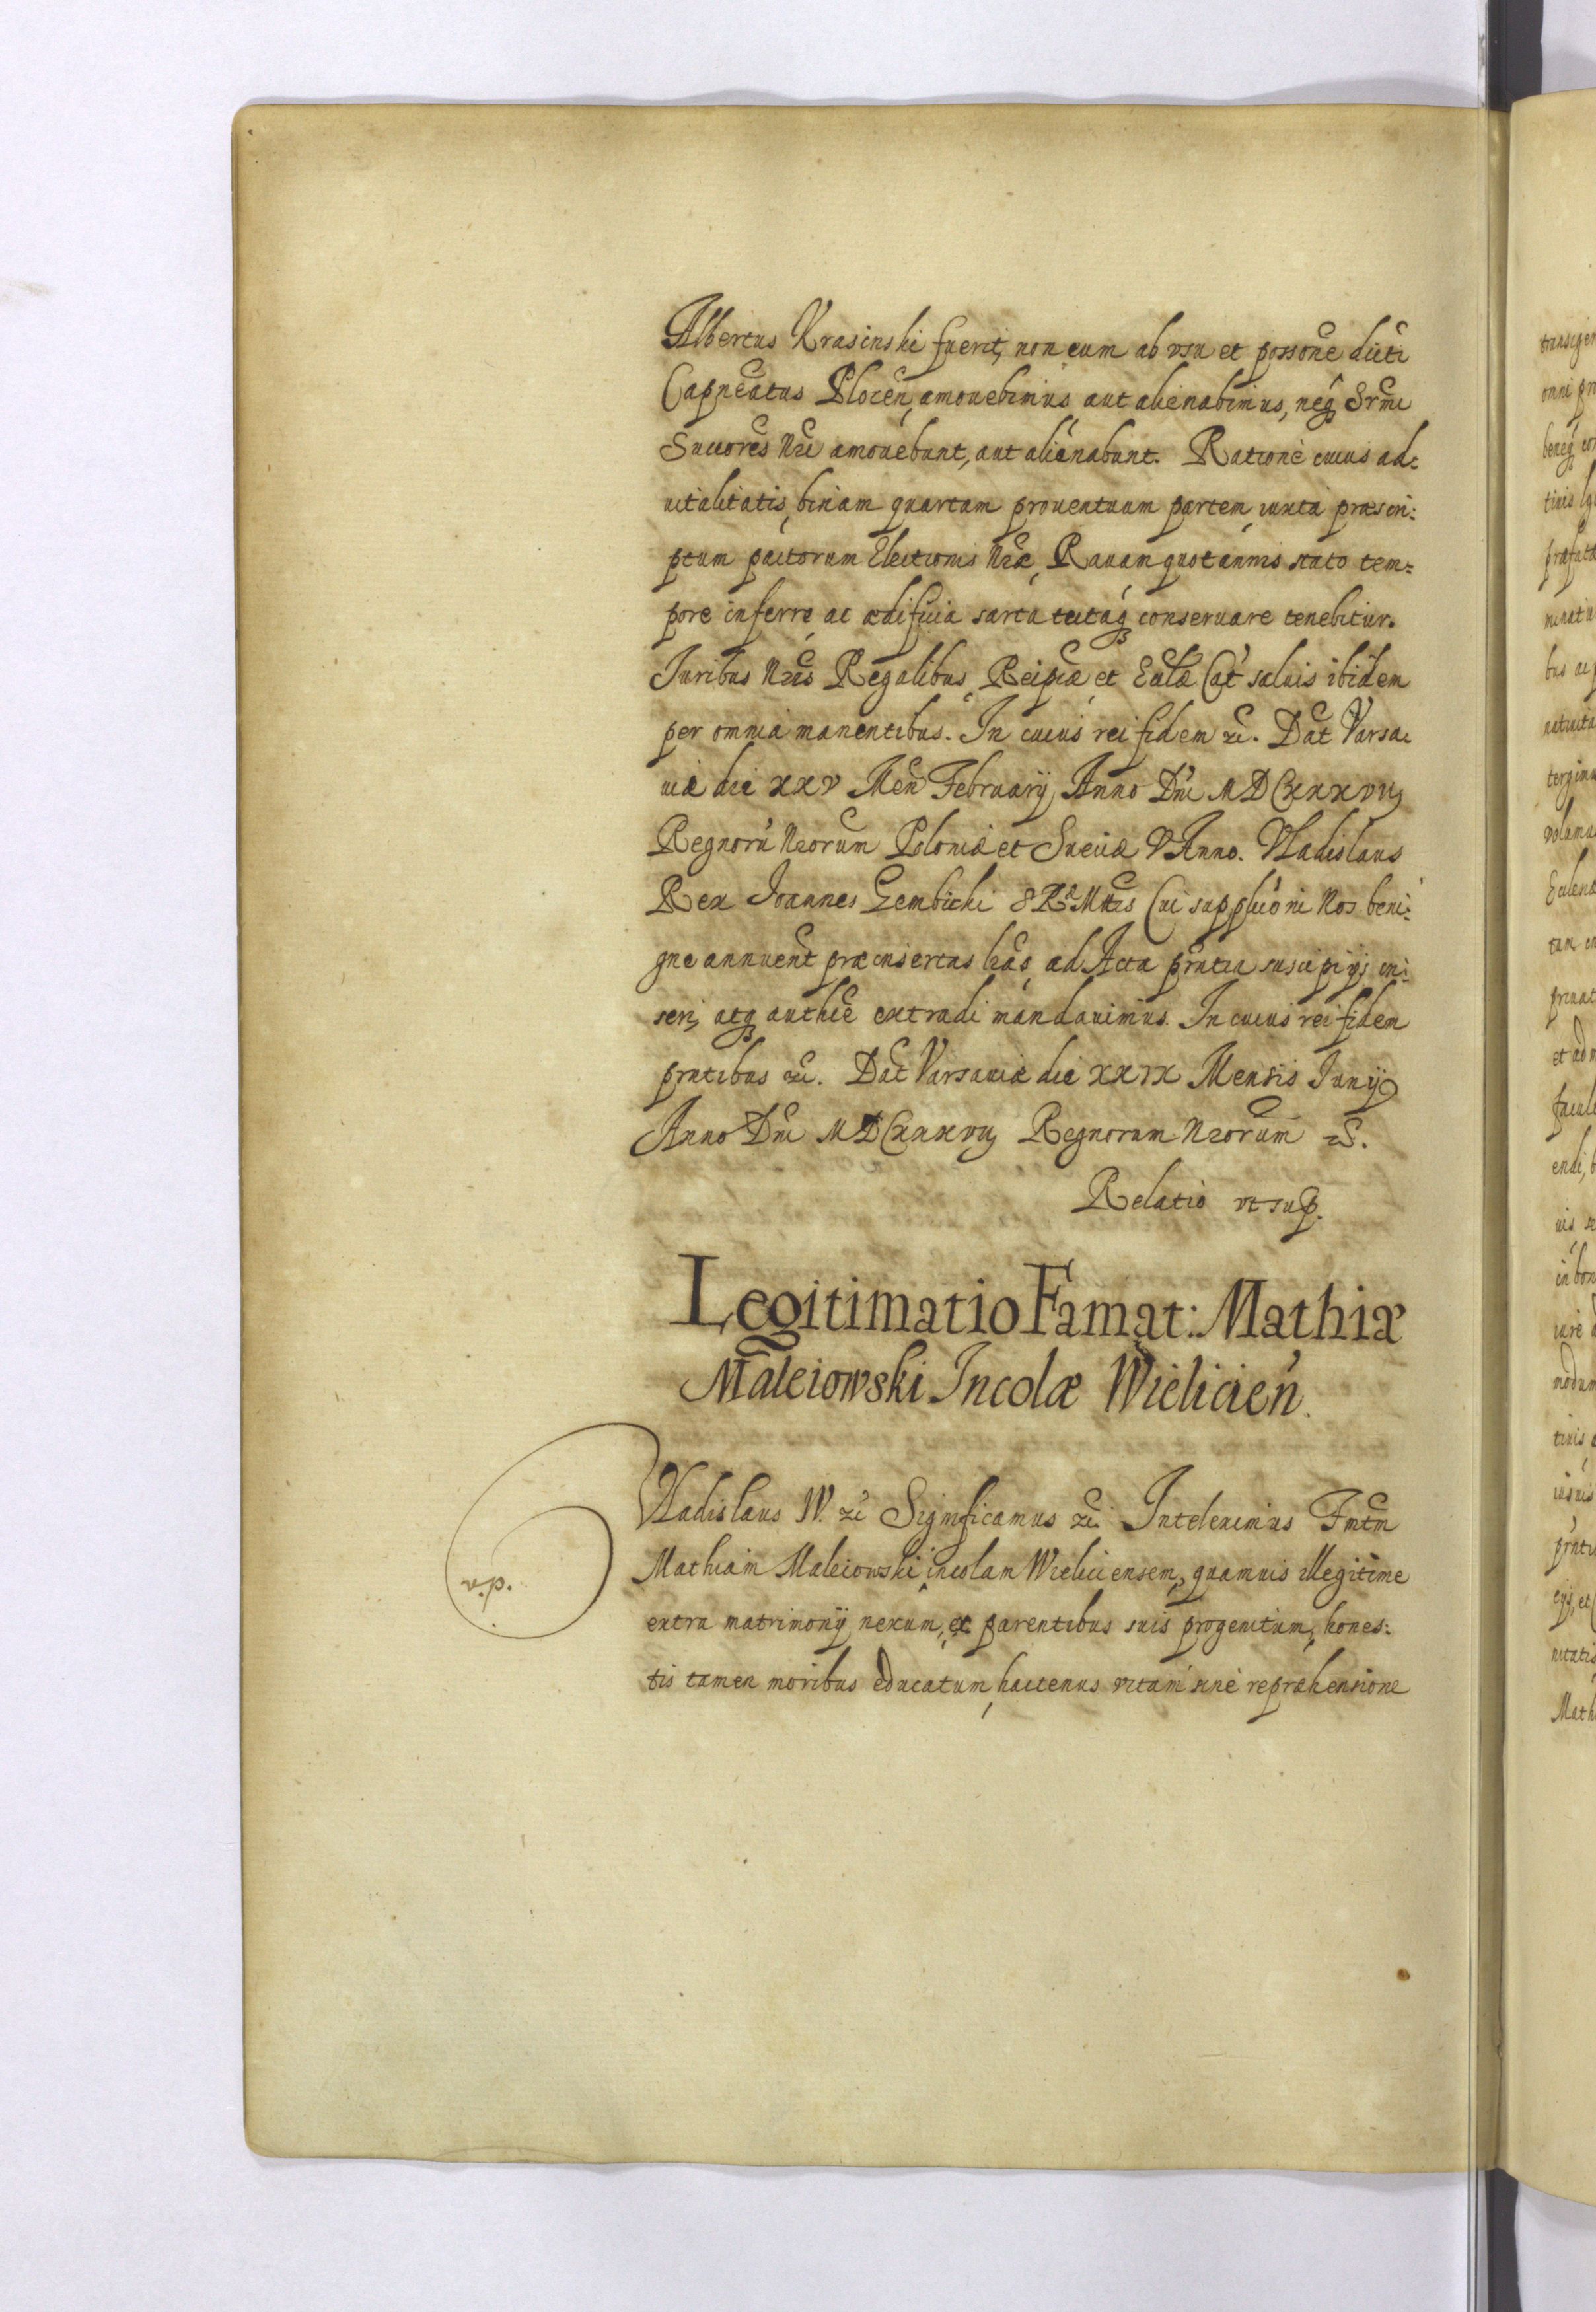 Albertus Krasinski fuerit, non eum ab vsu et possone dicti
Capneatus Plocen, amouebimus aut alienabimus, neq Srmi
Succores Nri amouebunt, aut alienabunt. Ratione cuius ad:
uitalitatis, binam quartam prouentuum partem, iuxta præscri:
ptum pactorum Electionis Nræ, Rauam quotannis stato tem=
pore inferre, ac ædificia sarta tectaq conseruare tenebitur.
Iuribus Nris Regalibus, Reipcæ, et Ecclæ Cat saluis ibidem
per omnia manentibus. In cuius rei fidem etc. Dat Varsa:
uiæ die XXV Men February Anno Dni MDCXXXVII
Regnorū Nrorum Poloniæ et Sueciæ V Anno. Vladislaus
Rex Ioannes Gembicki S R Mttis Cui supplicóni Nos beni:
gne annuent præinsertas lras, ad Acta prntia suscipi, in:
seri, atq authce extradi mandauimus. In cuius rei fidem
prntibus etc. Dat Varsauiæ die XXIX Mensis Iunij
Anno Dni MDCXXXVII Regnorum Nrorum etc.
Relatio vt sup.
Legitimatio Famat: Mathiæ
Maleiowski Incolæ Wielicień.
Vladislaus IV. etc Significamus etc Intelleximus Fmtm
v.p.
Mathiam Maleiowski incolam Wieliciensem, quamuis illegitime
extra matrimonij nexum, ex parentibus suis progenitum, hones:
tis tamen moribus educatum, hactenus vitam sine repræhensione